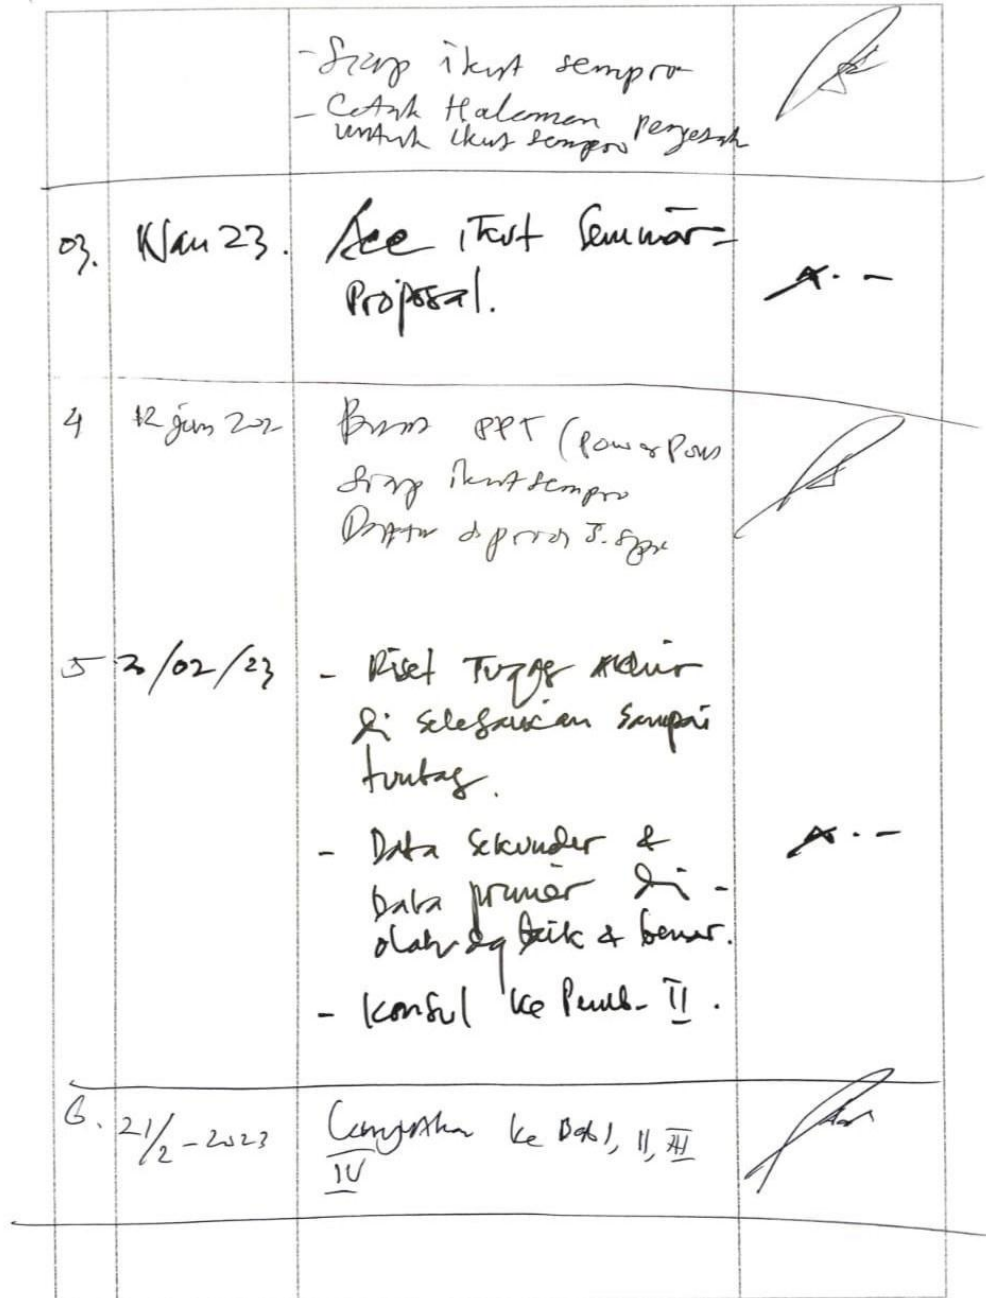 - Siap ikut sempro
- Cetak Halaman pengesah
untuk ikut sempro
03. Jan 23. Acc ikut Seminar
Proposal.
4 12 jan 202 PPT (Power Poin
Siap ikut sempro
Daftar
5 /02/23 - Riset Tugas Akhir
di selesaikan sampai
tuntas.
- Data Sekunder &
Data primer di -
olah dg baik & benar.
- Konsul ke Pemb. II.
6. 21/2-2023 Lanjutkan ke Bab I, II, III
IV